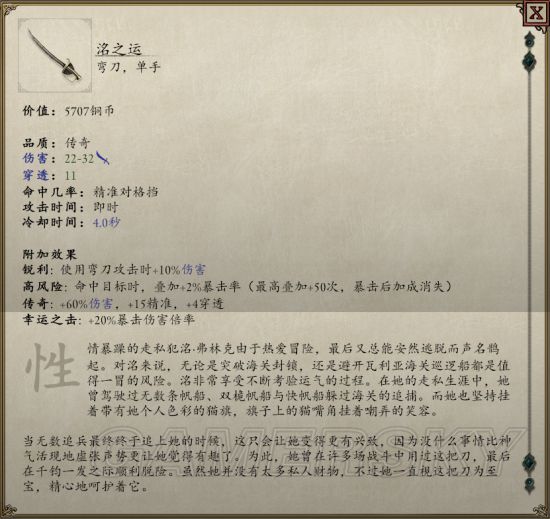 X
洺之运
弯刀，单手
价值：5707铜币
品质：传奇
伤害：22-32
穿透：11
命中几率：精准对格挡
攻击时间：即时
冷却时间：4.0秒
附加效果
锐利：使用弯刀攻击时+10%伤害
高风险：命中目标时，叠加+2%暴击率（最高叠加+50次，暴击后加成消失）
传奇：+60%伤害，+15精准，+4穿透
幸运之击：+20%暴击伤害倍率
性情暴躁的走私犯洺·弗林克由于热爱冒险，最后又总能安然逃脱而声名鹊
起。对洺来说，无论是突破海关封锁，还是避开瓦利亚海关巡逻船都是值
得一冒的风险。洺非常享受不断考验运气的过程。在她的走私生涯中，她
曾驾驶过无数条帆船、双桅帆船与快帆船躲过海关的追捕。而她也坚持挂
着带有她个人色彩的猫旗，旗子上的猫嘴角挂着嘲弄的笑容。
当无数追兵最终终于追上她的时候，这只会让她变得更有兴致，因为没什么事情比神
气活现地虚张声势更让她觉得有趣了。为此，她曾在许多场战斗中用过这把刀，最后
在千钧一发之际顺利脱险。虽然她并没有太多私人财物，不过她一直视这把刀为至
宝，精心地呵护着它。
GAMERSKY